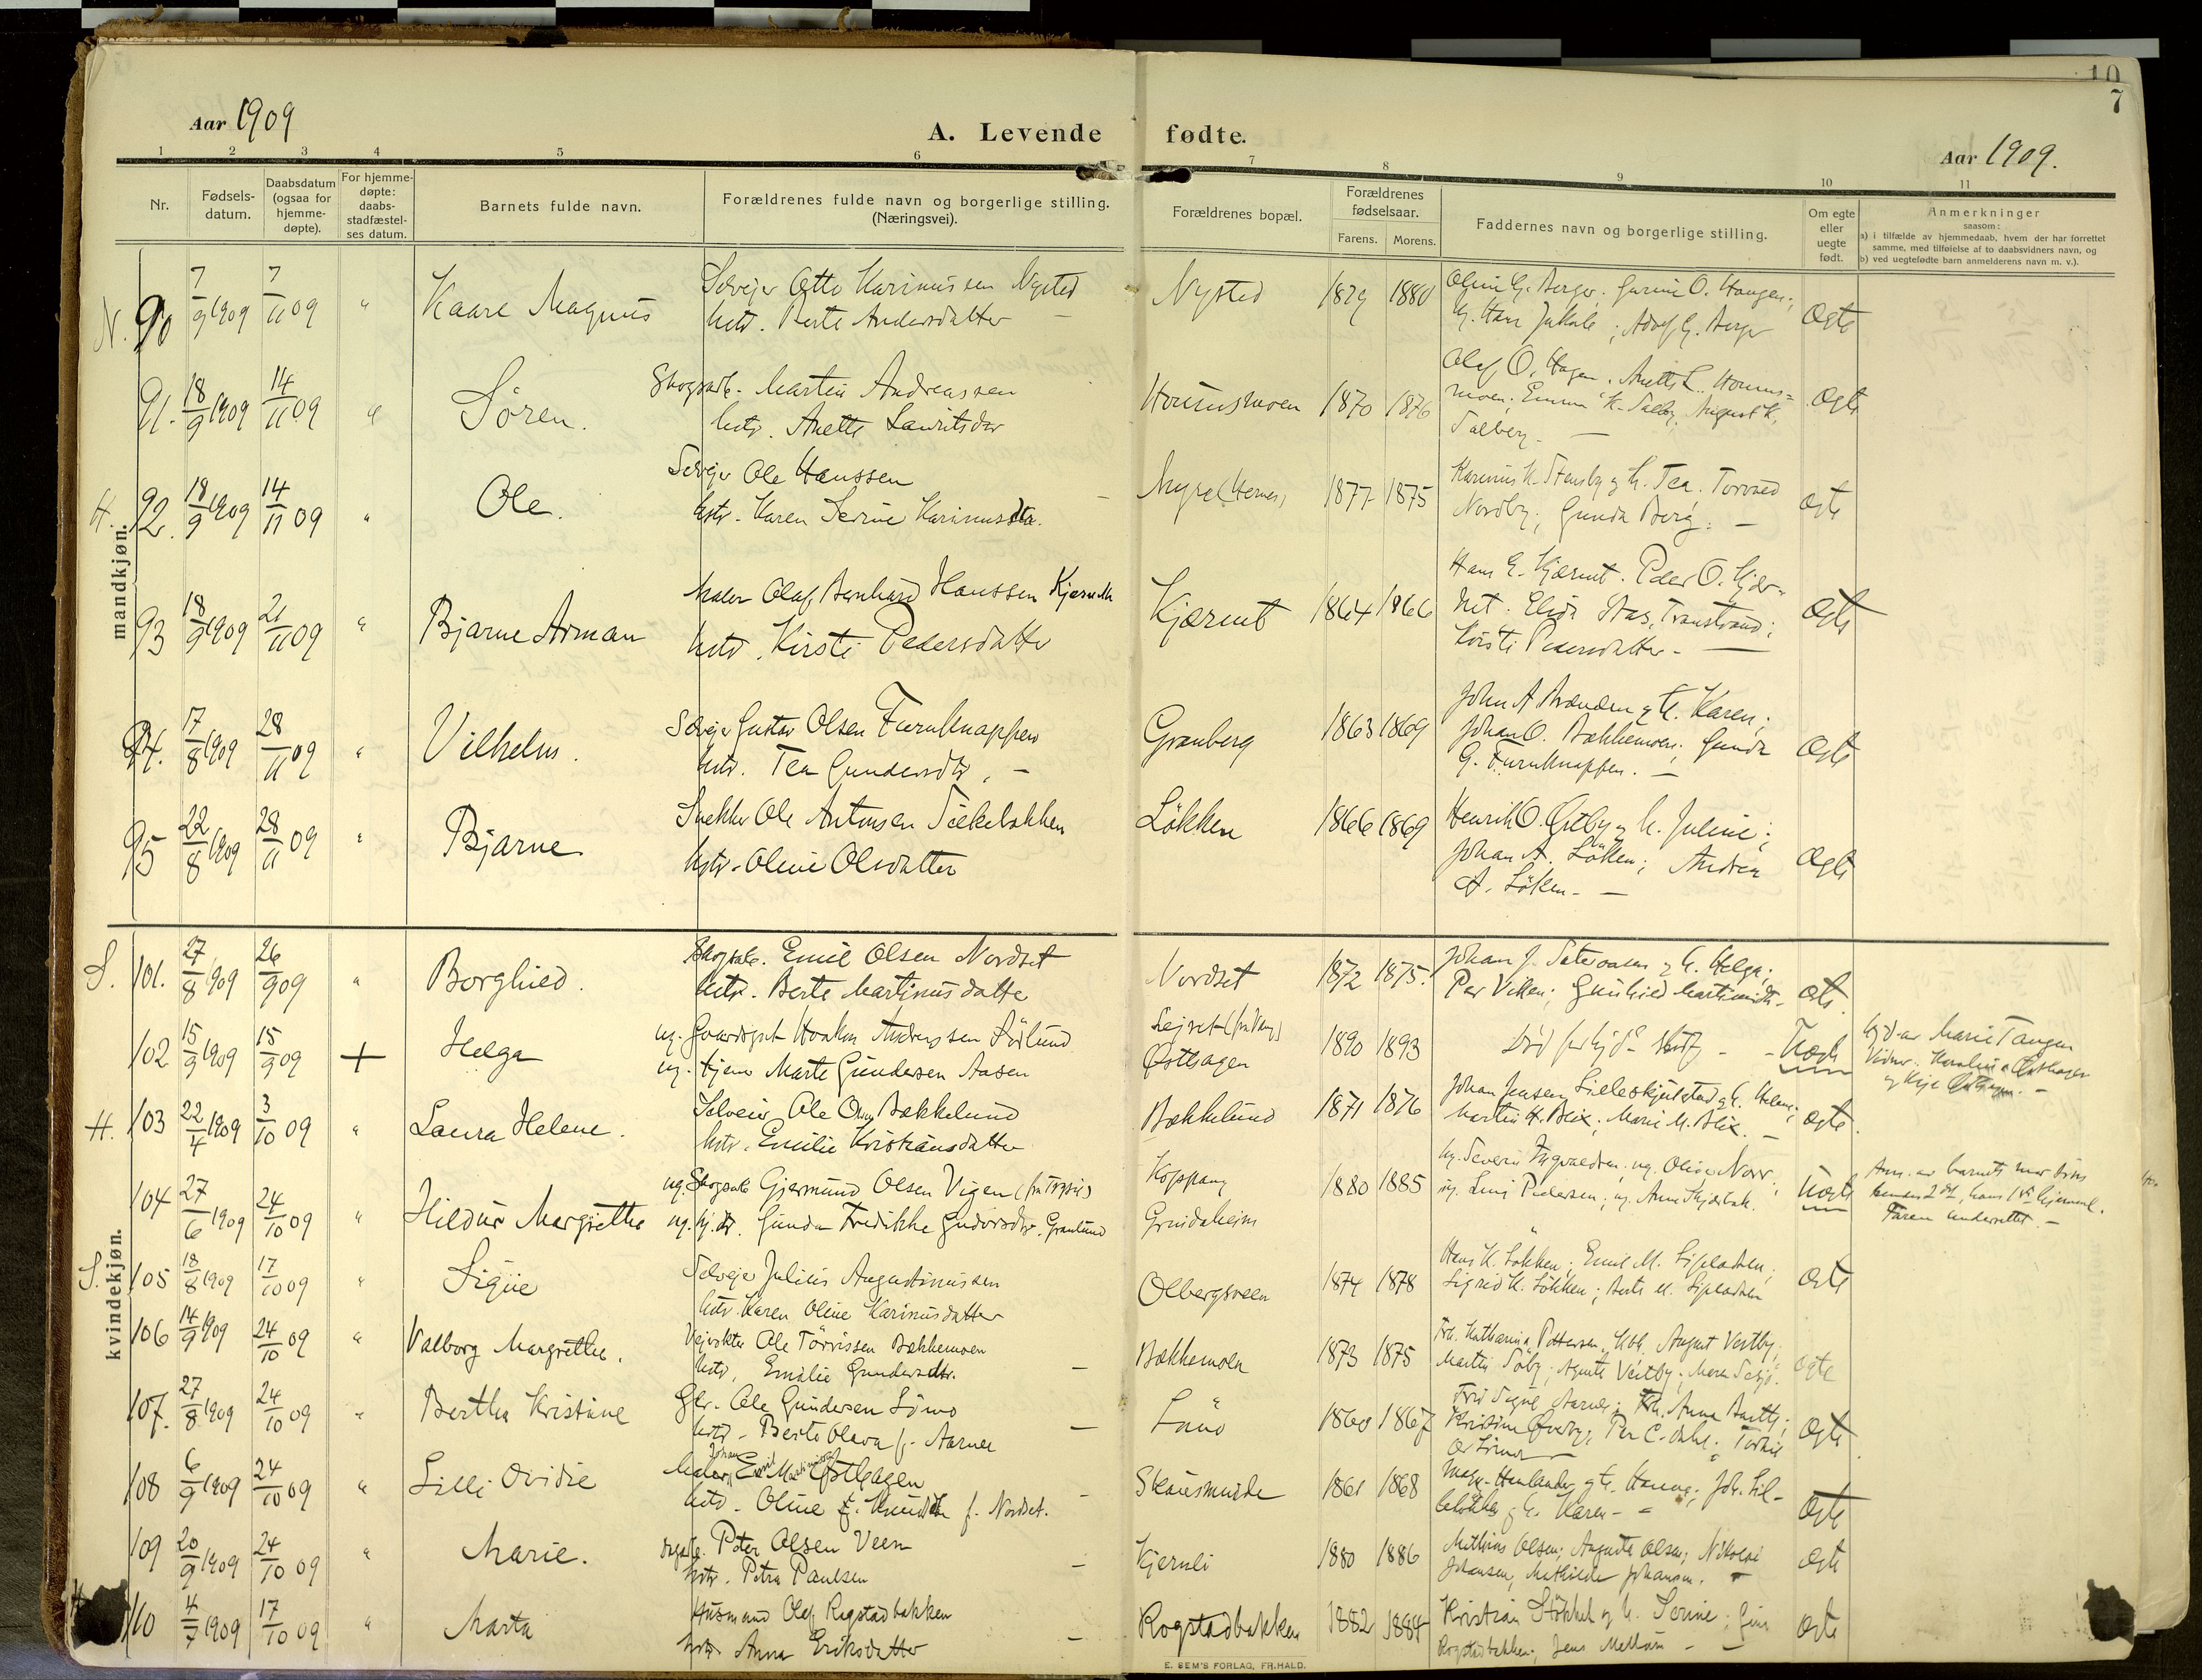 10
7
Aar 1909
A. Levende fødte.
Aar 1909.
1 2 3 4 5 6 7 8 9 10 11
Nr.
Fødsels-
datum.
Daabsdatum
(ogsaa for
hjemme-
døpte).
For hjemme-
døpte:
daabs-
stadfæstel-
ses datum.
Barnets fulde navn.
Forældrenes fulde navn og borgerlige stilling.
(Næringsvei).
Forældrenes bopæl.
Forældrenes
fødselsaar.
Farens. Morens.
Faddernes navn og borgerlige stilling.
Om egte
eller
uegte
født.
Anmerkninger
saasom:
a) i tilfælde av hjemmedaab, hvem der har forrettet
samme, med tilføielse af to daabsvidners navn, og
b) ved uegtefødte barn anmelderens navn m. v.).
mandkjøn.
N. 90 7/9 1909 7/11 09 " Kaare Magnus
Selvejer Otto Karinussen Nysted
hstr. Berte Andersdatter -
Nysted 1879 1880
Oline G. Berger; Gurine O. Haugen;
Adolf G. Berger
Egte
91. 18/9 1909 14/11 09 " Sören.
Skogsarb. Martin Andreassen
hstr. Anette Lauritsdtr
1870 1876
Olaf O. Hagen. Anette L.
moen; Emma K. Salby. August K.
Salberg -
Egte
H. 92. 18/9 1909 14/11 09 " Ole.
Selvejer Ole Hanssen
hstr. Karen Serine Karinusdtr.
Myre (Hernes) 1877 1875
Karinus K. Stensby og h. Tea. Torvald
Nordby; Gunda Berg. -
Egte
93 18/9 1909 21/11 09 " Bjarne Arman
Maler Olaf Bernhard Hanssen Kjærnet
hstr. Kirsti Pedersdatter
Kjærnet 1864 1866
Hans E. Kjærnet. Peder O. Kjær-
net. Elida Aas, Transtrand;
Kirsti Pedersdatter -
Egte
94. 17/8 1909 28/11 09 " Vilhelm.
Selvejer Gustav Olsen Furuknappen
hstr. Tea Gundersdtr. -
Granberg 1863 1869
John A. Brænden og h. Karen;
Johan O. Bakkemoen; Gunda
G. Furuknappen. -
Egte
95 22/8 1909 28/11 09 " Bjarne
Snekker Ole Antonsen
hstr. Oline Olsdatter
Lökken 1866 1869
Henrik O. og h. Juline;
Johan A. Löken; Andrea
A. Löken -
Egte
kvindekjøn.
S. 101. 27/8 1909 26/9 09 " Borghild.
Skogsarb. Emil Olsen Nordset
hstr. Berte Martinusdatter
Nordset 1872 1875.
Johan J. og h. Helga;
Per Viken; Gunhild
Egte.
102 15/9 1909 15/9 09 + Helga
ug. Gaardsgut Haakon Anderssen Sörlund
ug. tjener Marte Gundersen Aasen
Østhagen 1890 1893
- Uegte
Hjd. av Marie Tangen
Vidner: Karoline Østhagen
og Østhagen. -
H. 103 22/4 1909 3/10 09 " Laura Helene.
Selveier Ole Olsen Bækkelund
hstr. Emilie Kristiansdatter
Bækkelund 1871 1876
Johan Jensen Lilleskjulstad og h. Helene;
Martin H. Blix; Marie M. Blix. -
Egte.
104 27/6 1909 24/10 09 " Hildur Margrethe
ug. Skogsarb. Gjermund Olsen Vigen (fra Trysil)
ug. Gunda Fredrikke Gudersdtr. Granlund
Koppang
Grindaheim 1880 1885
ug. ug. Oline Norr;
ug. Pedersen; ug. Anna
Uegte
Anm. av barnets mor
hennes 2det, hans 1ste
Faren underrettet. -
S. 105 18/8 1909 17/10 09 " Signe
Selvejer Julius Augustinussen
hstr. Karen Oline Karinusdatter
Olbergsveen 1874 1878
Hans K. Løkken; Emil M. Sipladsen;
Sigrid K. Løkken; Berte M. Sipladsen
Egte
106 14/9 1909 24/10 09 " Valborg Margrethe.
Vejvokter Ole Törrissen Bakkemoen
hstr. Emilie Gundersdtr. -
Bakkemoen 1873 1875
Katharina Pettersen, August Vestby;
Martin Säby; Agnete Vestby;
Egte
107. 27/8 1909 24/10 09 " Bertha Kristine
Gbr. Ole Gundersen
hstr. Berte Olava f. Aarnes -
1860 1867
Signe Aarnes; Anna
Kristine Per C. Dahl;
Egte
108 6/9 1909 24/10 09 " Lilli Ovidie
Maler Johan Emil Martinussen Østhagen
hstr. Oline f. Nordset. -
1861 1868
og h. Hanna; Joh. Lil-
og h. Karen -
Egte
109 20/9 1909 24/10 09 " Marie.
Peter Olsen Veen
hstr. Petra Paulsen -
Kjernli 1880 1886
Mathias Olsen; Augusta Olsen; Nikolai
Johansen, Mathilde Johansen.
Egte
110 4/7 1909 17/10 09 " Marta
Husmand Olaf Rogstadbakken
hstr. Anna Eriksdatter -
Rogstadbakken 1882 1884
Kristian Stökket og h. Serine; Gina
Rogstadbakken; Jens Mellum -
Egte
E. SEM'S FORLAG, FR.HALD.